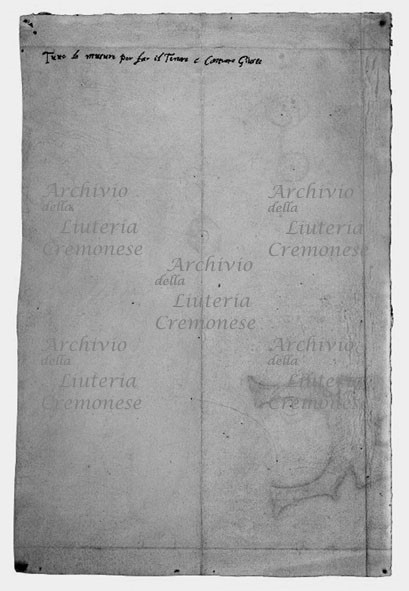 Tute le misure per far il Tenore e Giuste
Archivio
della
Liuteria
Cremonese
Archivio
della
Liuteria
Cremonese
Archivio
della
Liuteria
Cremonese
Archivio
della
Liuteria
Cremonese
Archivio
della
Liuteria
Cremonese